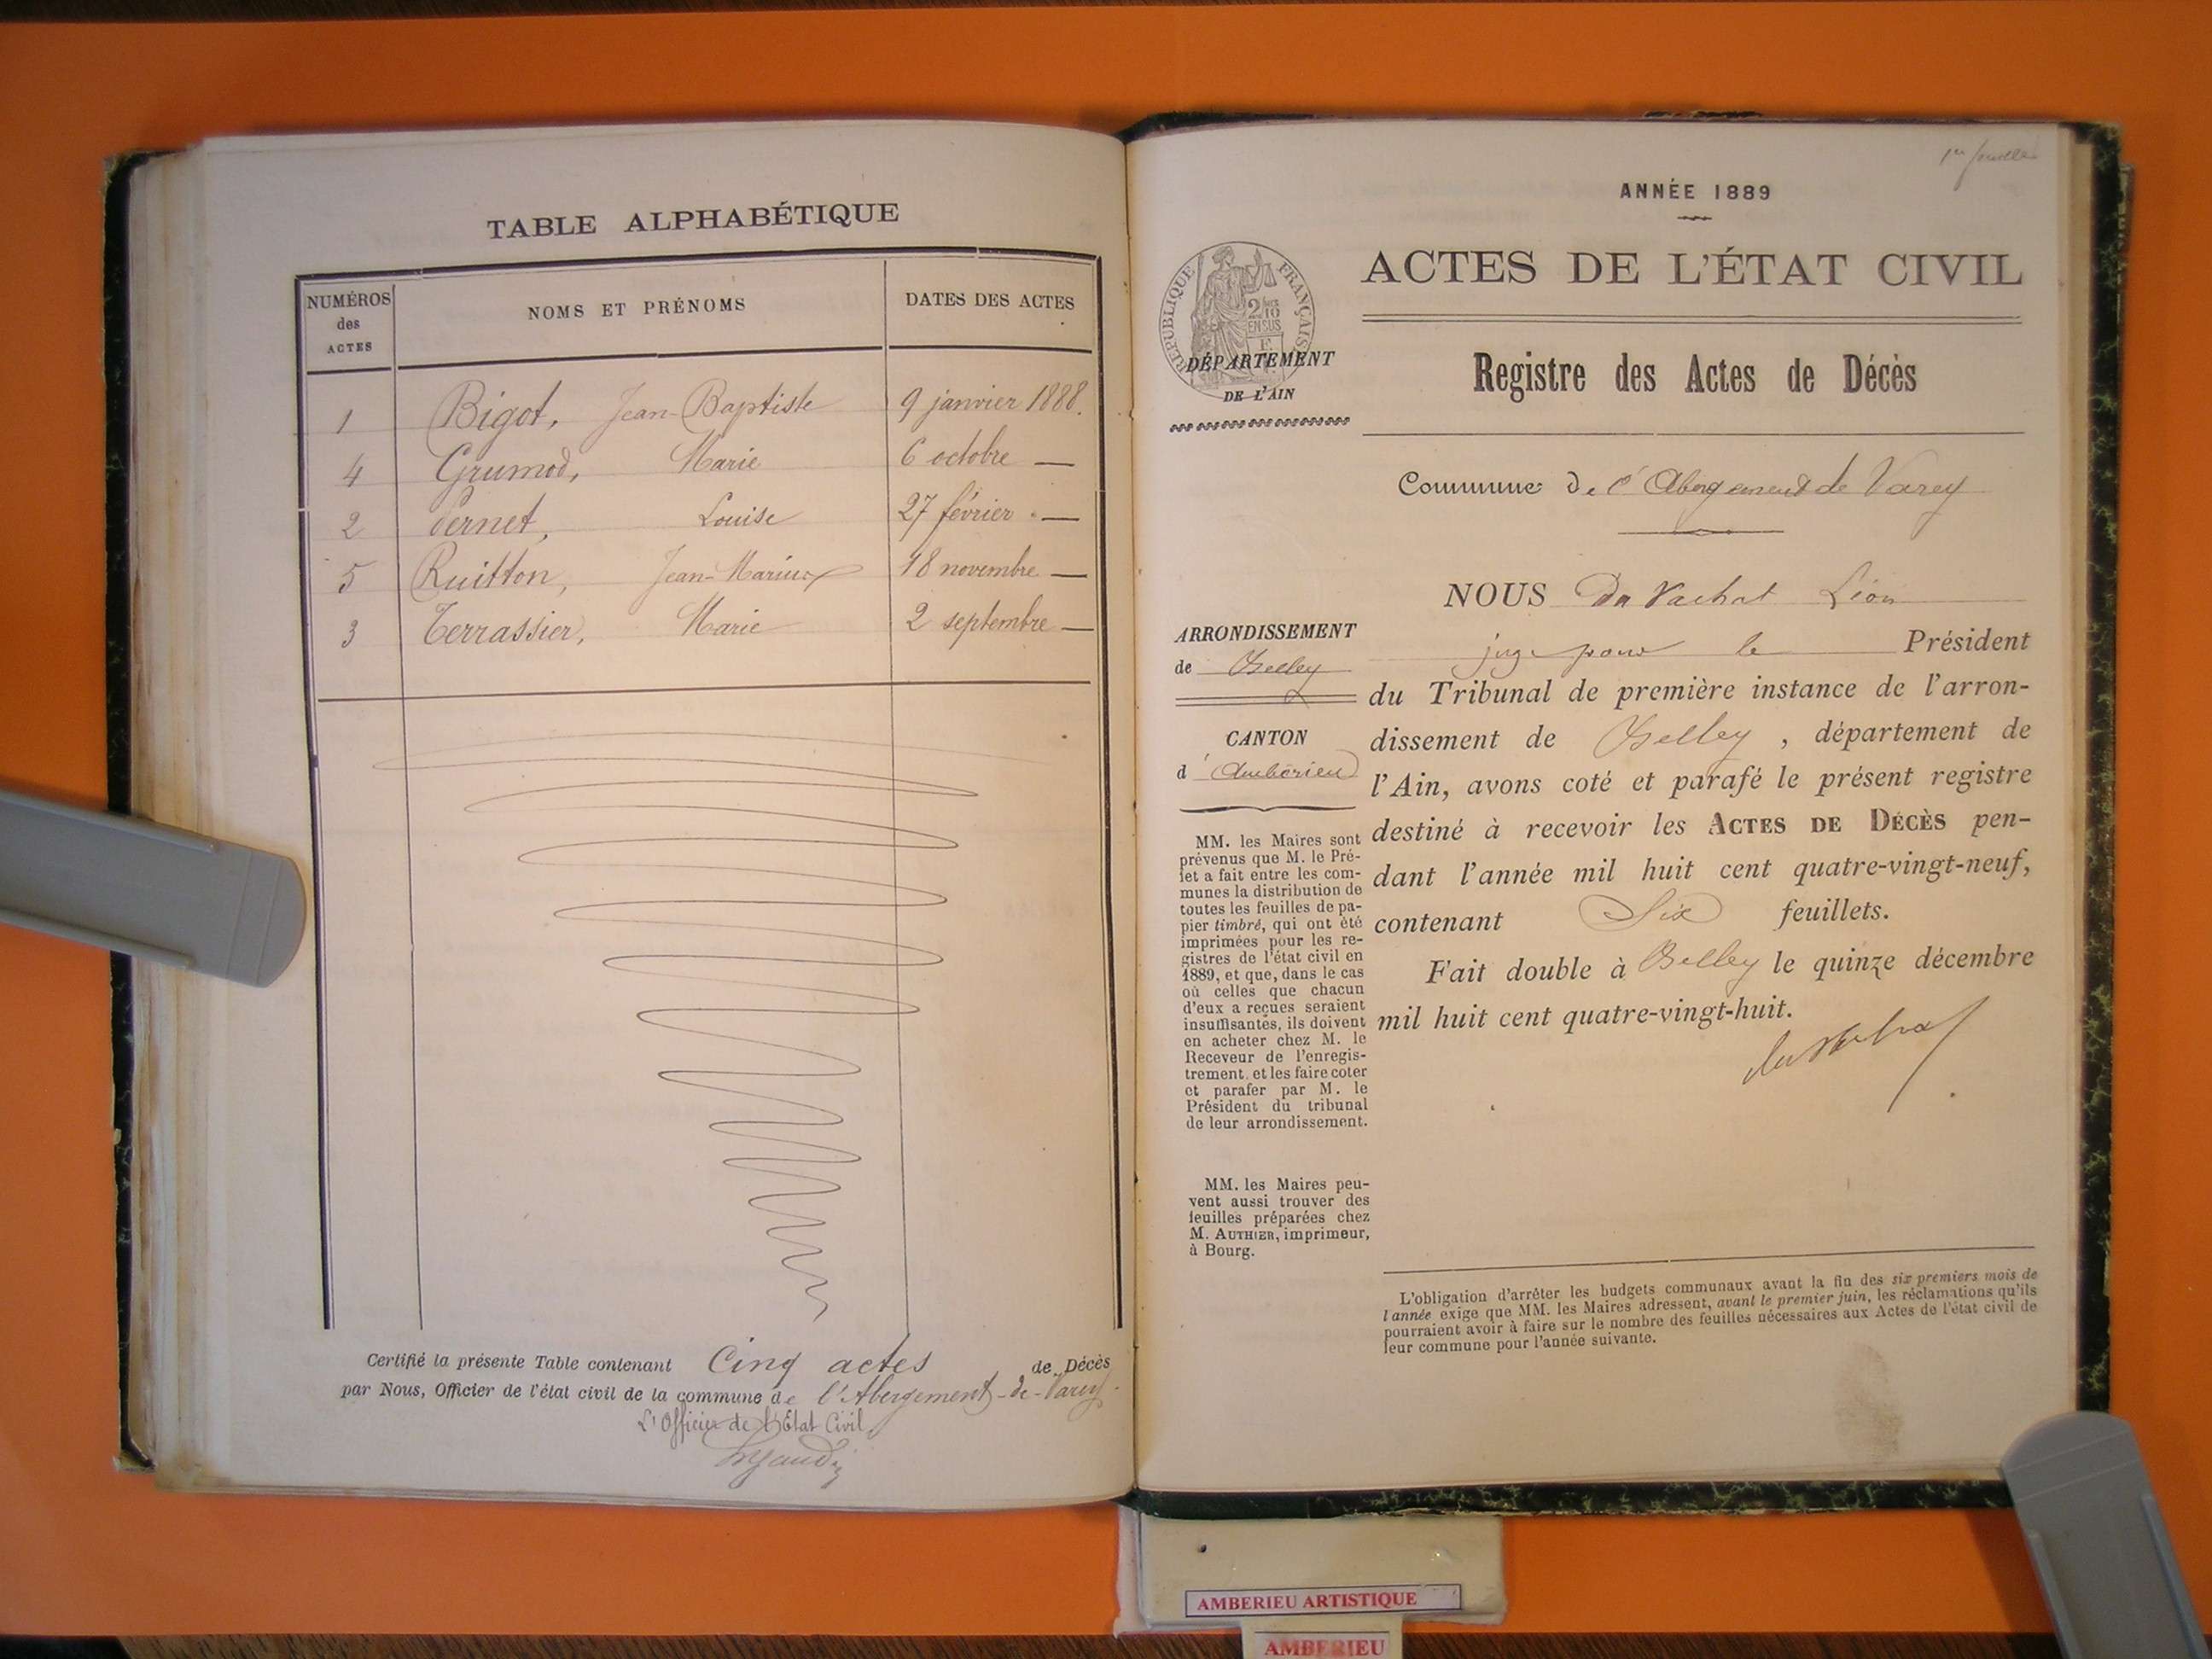 TABLE ALPHABÉTIQUE
NUMÉROS des ACTES
NOMS ET PRÉNOMS
DATES DES ACTES
1 Bigot, Jean-Baptiste 9 janvier 1888.
4 Grumod, Marie 6 octobre —
2 Pernet, Louise 27 février —
5 Ruitton, Jean-Marius 18 novembre —
3 Terrassier, Marie 2 septembre —
Certifié la présente Table contenant Cinq actes de Décès
par Nous, Officier de l'état civil de la commune de l'Abergement-de-Varey.
L'Officier de l'État Civil,
ANNÉE 1889
ACTES DE L'ÉTAT CIVIL
RÉPUBLIQUE FRANÇAISE
2/10
EN SUS
DÉPARTEMENT
DE L'AIN
Registre des Actes de Décès
Commune de l'Abergement de Varey
NOUS Du Vachat Léon
juge pour le Président
du Tribunal de première instance de l'arron-
dissement de Belley, département de
l'Ain, avons coté et parafé le présent registre
destiné à recevoir les ACTES DE DÉCÈS pen-
dant l'année mil huit cent quatre-vingt-neuf,
contenant Six feuillets.
Fait double à Belley le quinze décembre
mil huit cent quatre-vingt-huit.
ARRONDISSEMENT
de Belley
CANTON
d'Ambérieu
MM. les Maires sont
prévenus que M. le Pré-
fet a fait entre les com-
munes la distribution de
toutes les feuilles de pa-
pier timbré, qui ont été
imprimées pour les re-
gistres de l'état civil en
1889, et que, dans le cas
où celles que chacun
d'eux a reçues seraient
insuffisantes, ils doivent
en acheter chez M. le
Receveur de l'enregis-
trement, et les faire coter
et parafer par M. le
Président du tribunal
de leur arrondissement.
MM. les Maires peu-
vent aussi trouver des
feuilles préparées chez
M. AUTHIER, imprimeur,
à Bourg.
L'obligation d'arrêter les budgets communaux avant la fin des six premiers mois de
l'année exige que MM. les Maires adressent, avant le premier juin, les réclamations qu'ils
pourraient avoir à faire sur le nombre des feuilles nécessaires aux Actes de l'état civil de
leur commune pour l'année suivante.
AMBERIEU ARTISTIQUE
AMBERIEU